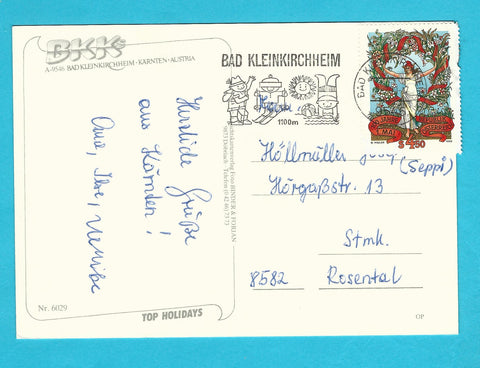 BKK
A-9546 BAD KLEINKIRCHHEIM · KÄRNTEN · AUSTRIA
Herzliche Grüße
aus Kärnten!
Oma, Ilse,
Nr. 6029
TOP HOLIDAYS
BAD KLEINKIRCHHEIM
1100m
BAD
1. MAI
S 4.50
Höllmüller
(Seppi)
Hörgaßstr. 13
Stmk.
8582 Rosental
OP